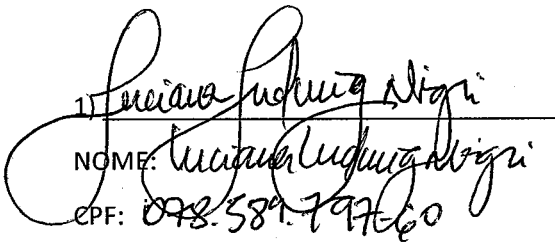 1) Luciana Ludwig Nigri
NOME: Luciana Ludwig Nigri
CPF: 098.589.797-60